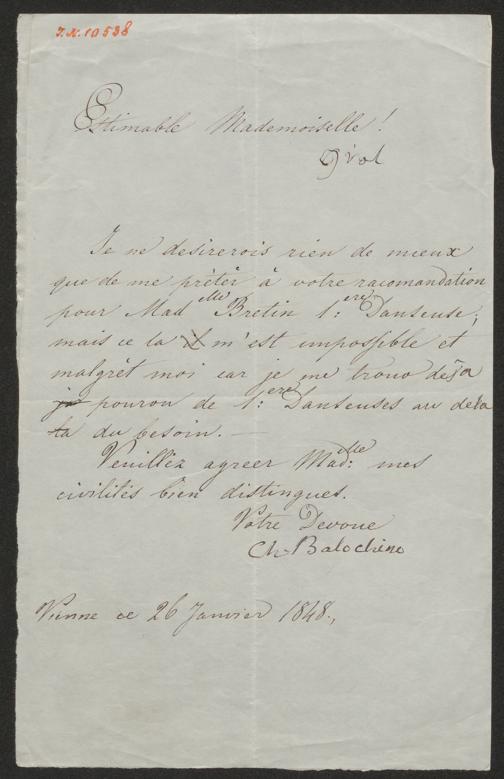 I.N. 10538
Estimable Mademoiselle!
Je ne desirerois rien de mieux
que de me prêter à votre racomandation
pour Madelle Bretin 1:ere Danseuse,
mais ce la il m'est impossible et
malgrêt moi car je me trouv deja
je pourvu de 1:ere Danseuses au dela
ta du besoin. —
Veuilléz agreer Mad:elle mes
civilités bien distingues.
Votre Devoue
Ch. Balochino
Vienne ce 26 Janvier 1848.,